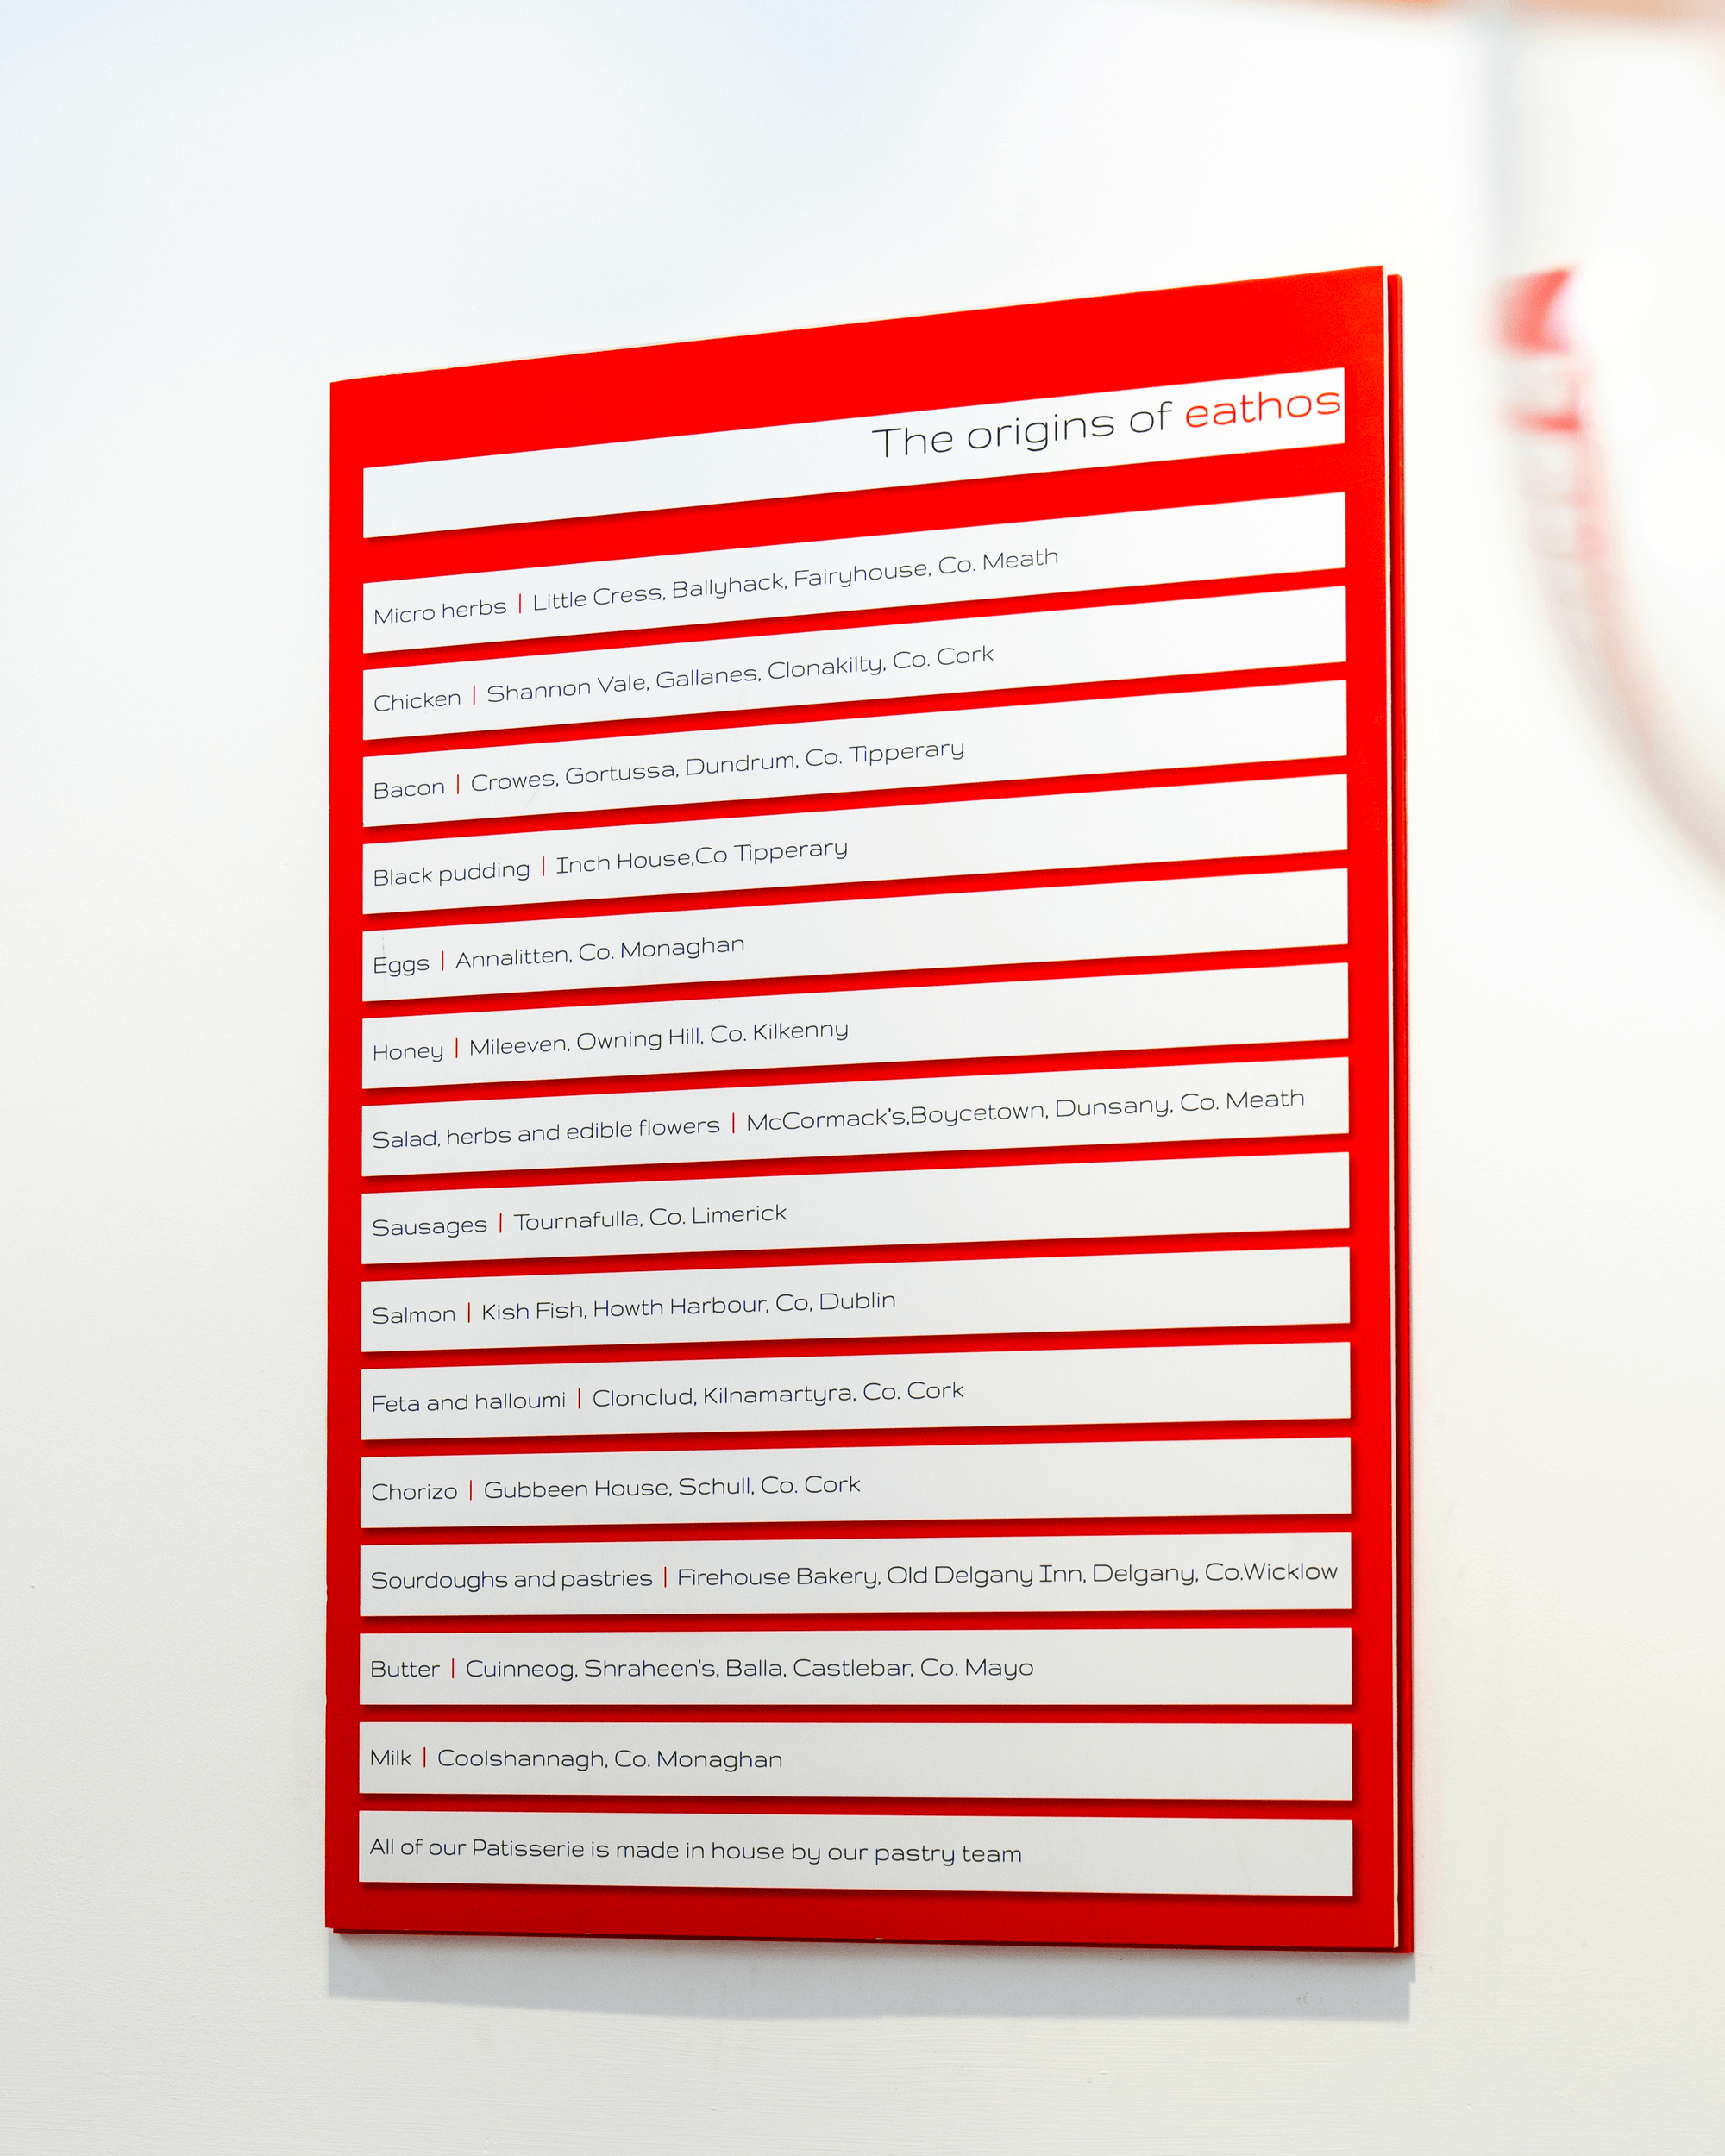 The origins of eathos
Micro herbs | Little Cress, Ballyhack, Fairyhouse, Co. Meath
Chicken | Shannon Vale, Gallanes, Clonakilty, Co. Cork
Bacon | Crowes, Gortussa, Dundrum, Co. Tipperary
Black pudding | Inch House,Co Tipperary
Eggs | Annalitten, Co. Monaghan
Honey | Mileeven, Owning Hill, Co. Kilkenny
Salad, herbs and edible flowers | McCormack's,Boycetown, Dunsany, Co. Meath
Sausages | Tournafulla, Co. Limerick
Salmon | Kish Fish, Howth Harbour, Co, Dublin
Feta and halloumi | Clonclud, Kilnamartyra, Co. Cork
Chorizo | Gubbeen House, Schull, Co. Cork
Sourdoughs and pastries | Firehouse Bakery, Old Delgany Inn, Delgany, Co.Wicklow
Butter | Cuinneog, Shraheen's, Balla, Castlebar, Co. Mayo
Milk | Coolshannagh, Co. Monaghan
All of our Patisserie is made in house by our pastry team